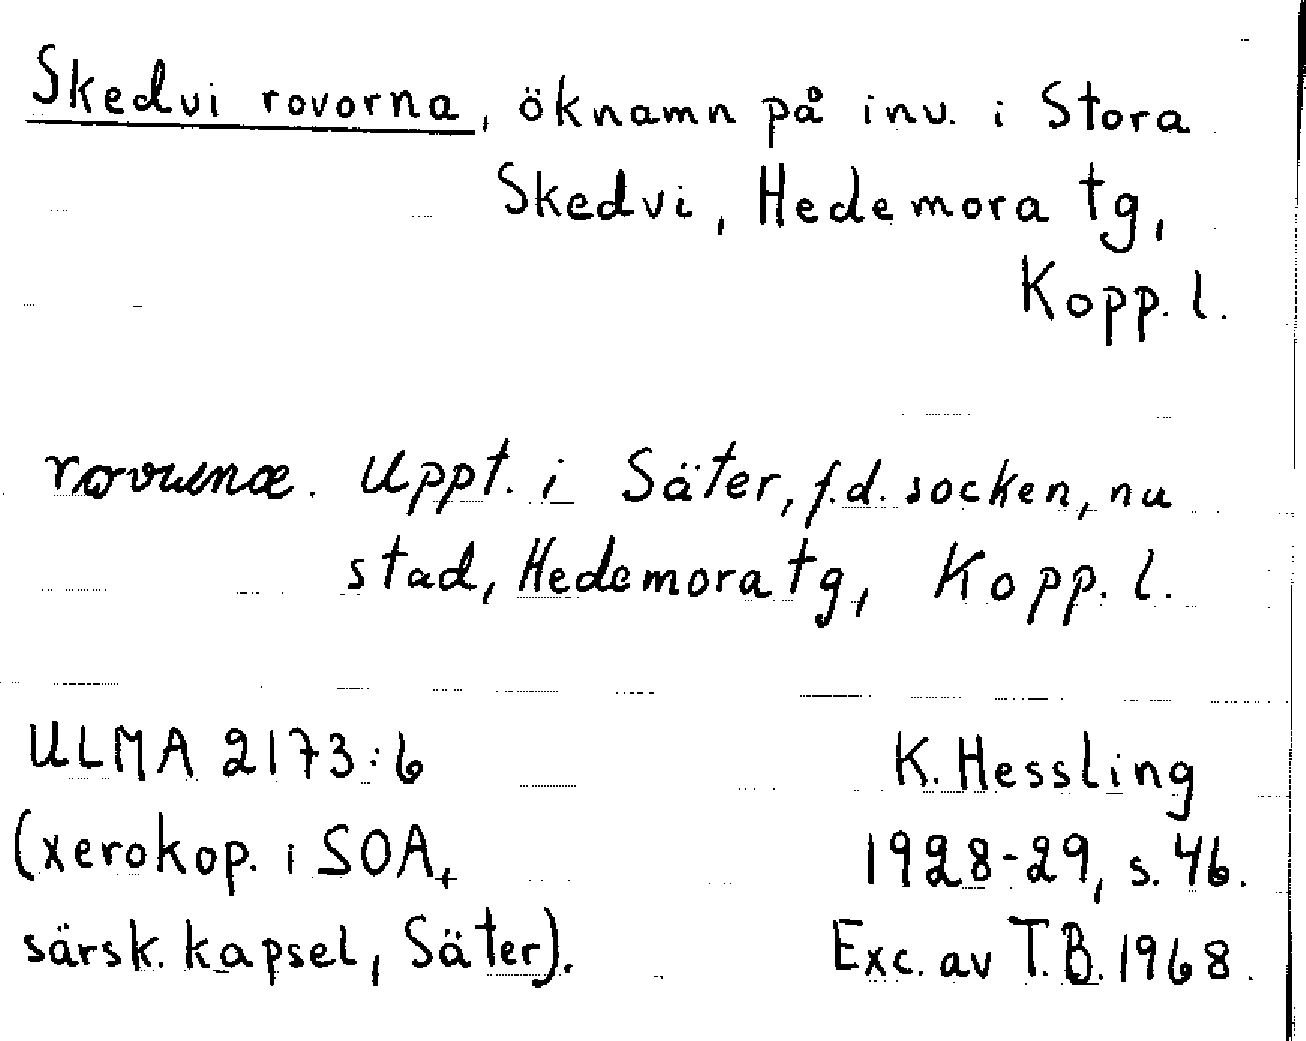 Skedvi rovorna, öknamn på inv. i Stora
Skedvi, Hedemora tg,
Kopp. l.
rovunæ. Uppt. i Säter, f.d. socken, nu
stad, Hedemora tg, Kopp. l.
ULMA 2173:6
(xerokop. i SOA,
särsk. kapsel, Säter).
K. Hessling
1928-29, s. 46.
Exc. av T.B. 1968.